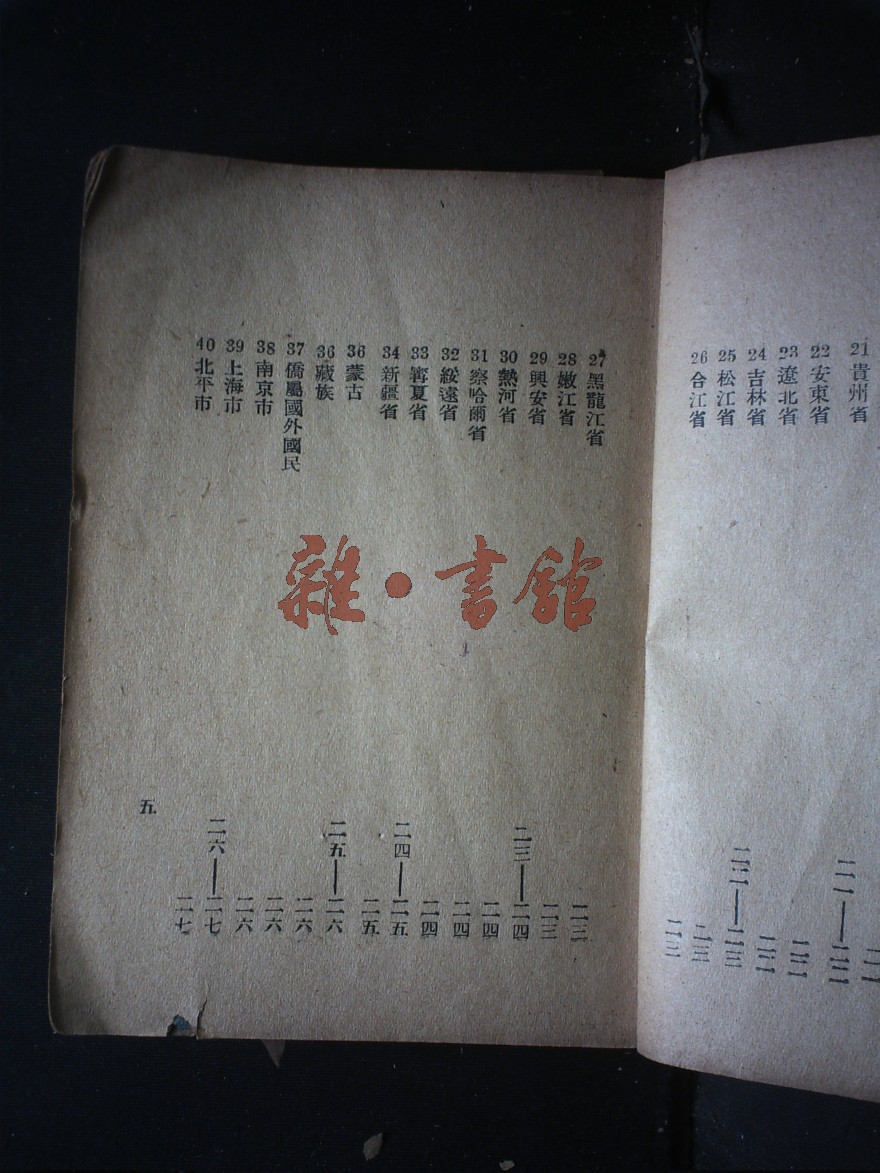 21 貴州省 二一——二二
22 安東省 二二
23 遼北省 二二
24 吉林省 二二——二三
25 松江省 二三
26 合江省 二三
27 黑龍江省 二三
28 嫩江省 二三
29 興安省 二三——二四
30 熱河省 二四
31 察哈爾省 二四
32 綏遠省 二四
33 寗夏省 二四——二五
34 新疆省 二五
36 蒙古 二五——二六
36 藏族 二六
37 僑屬國外國民 二六
38 南京市 二六
39 上海市 二六——二七
40 北平市 二七
五
雜·書館